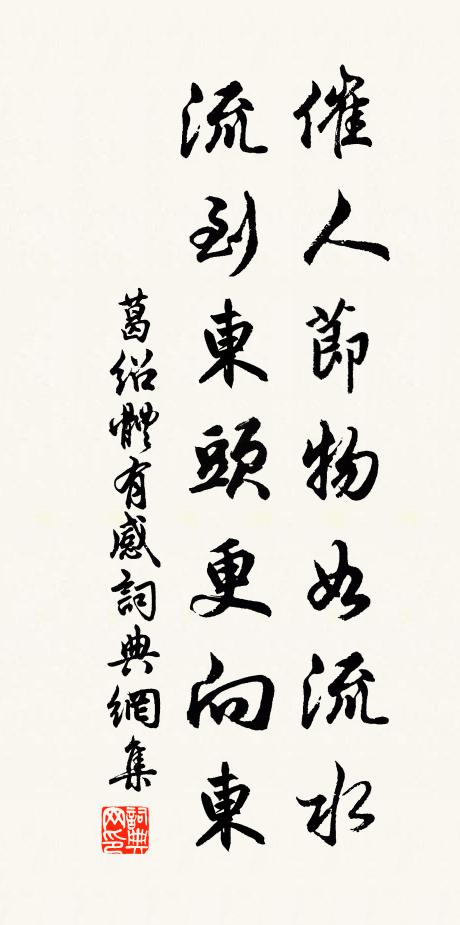 催人節物如流水
流到東頭更向東
葛紹體有感詞典網集
詞典网印